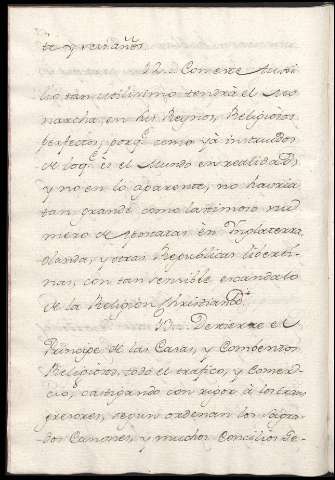 te y seis años.
12.. Con este Auxi-
lio tan utilissimo tendrá el Mo-
narcha, en sus Reynos, Religiosos
perfectos, porq.e como yà instruidos
de loq.e es el Mundo en realidad,
y no en lo aparente, no havria
tan grande como lastimoso nu-
mero de Apostatas en Ynglaterra,
Olanda, y otras Republicas liberti-
nas, con tan sensible escandalo
de la Religion Christiana.
13.. Destierre el
Principe de las Casas, y Combentos
Religiosos, todo el trafico, y Comer-
cio, castigando con rigor à los trans-
gresores, segun ordenan los Sagra-
dos Canones, y muchos Concilios De-